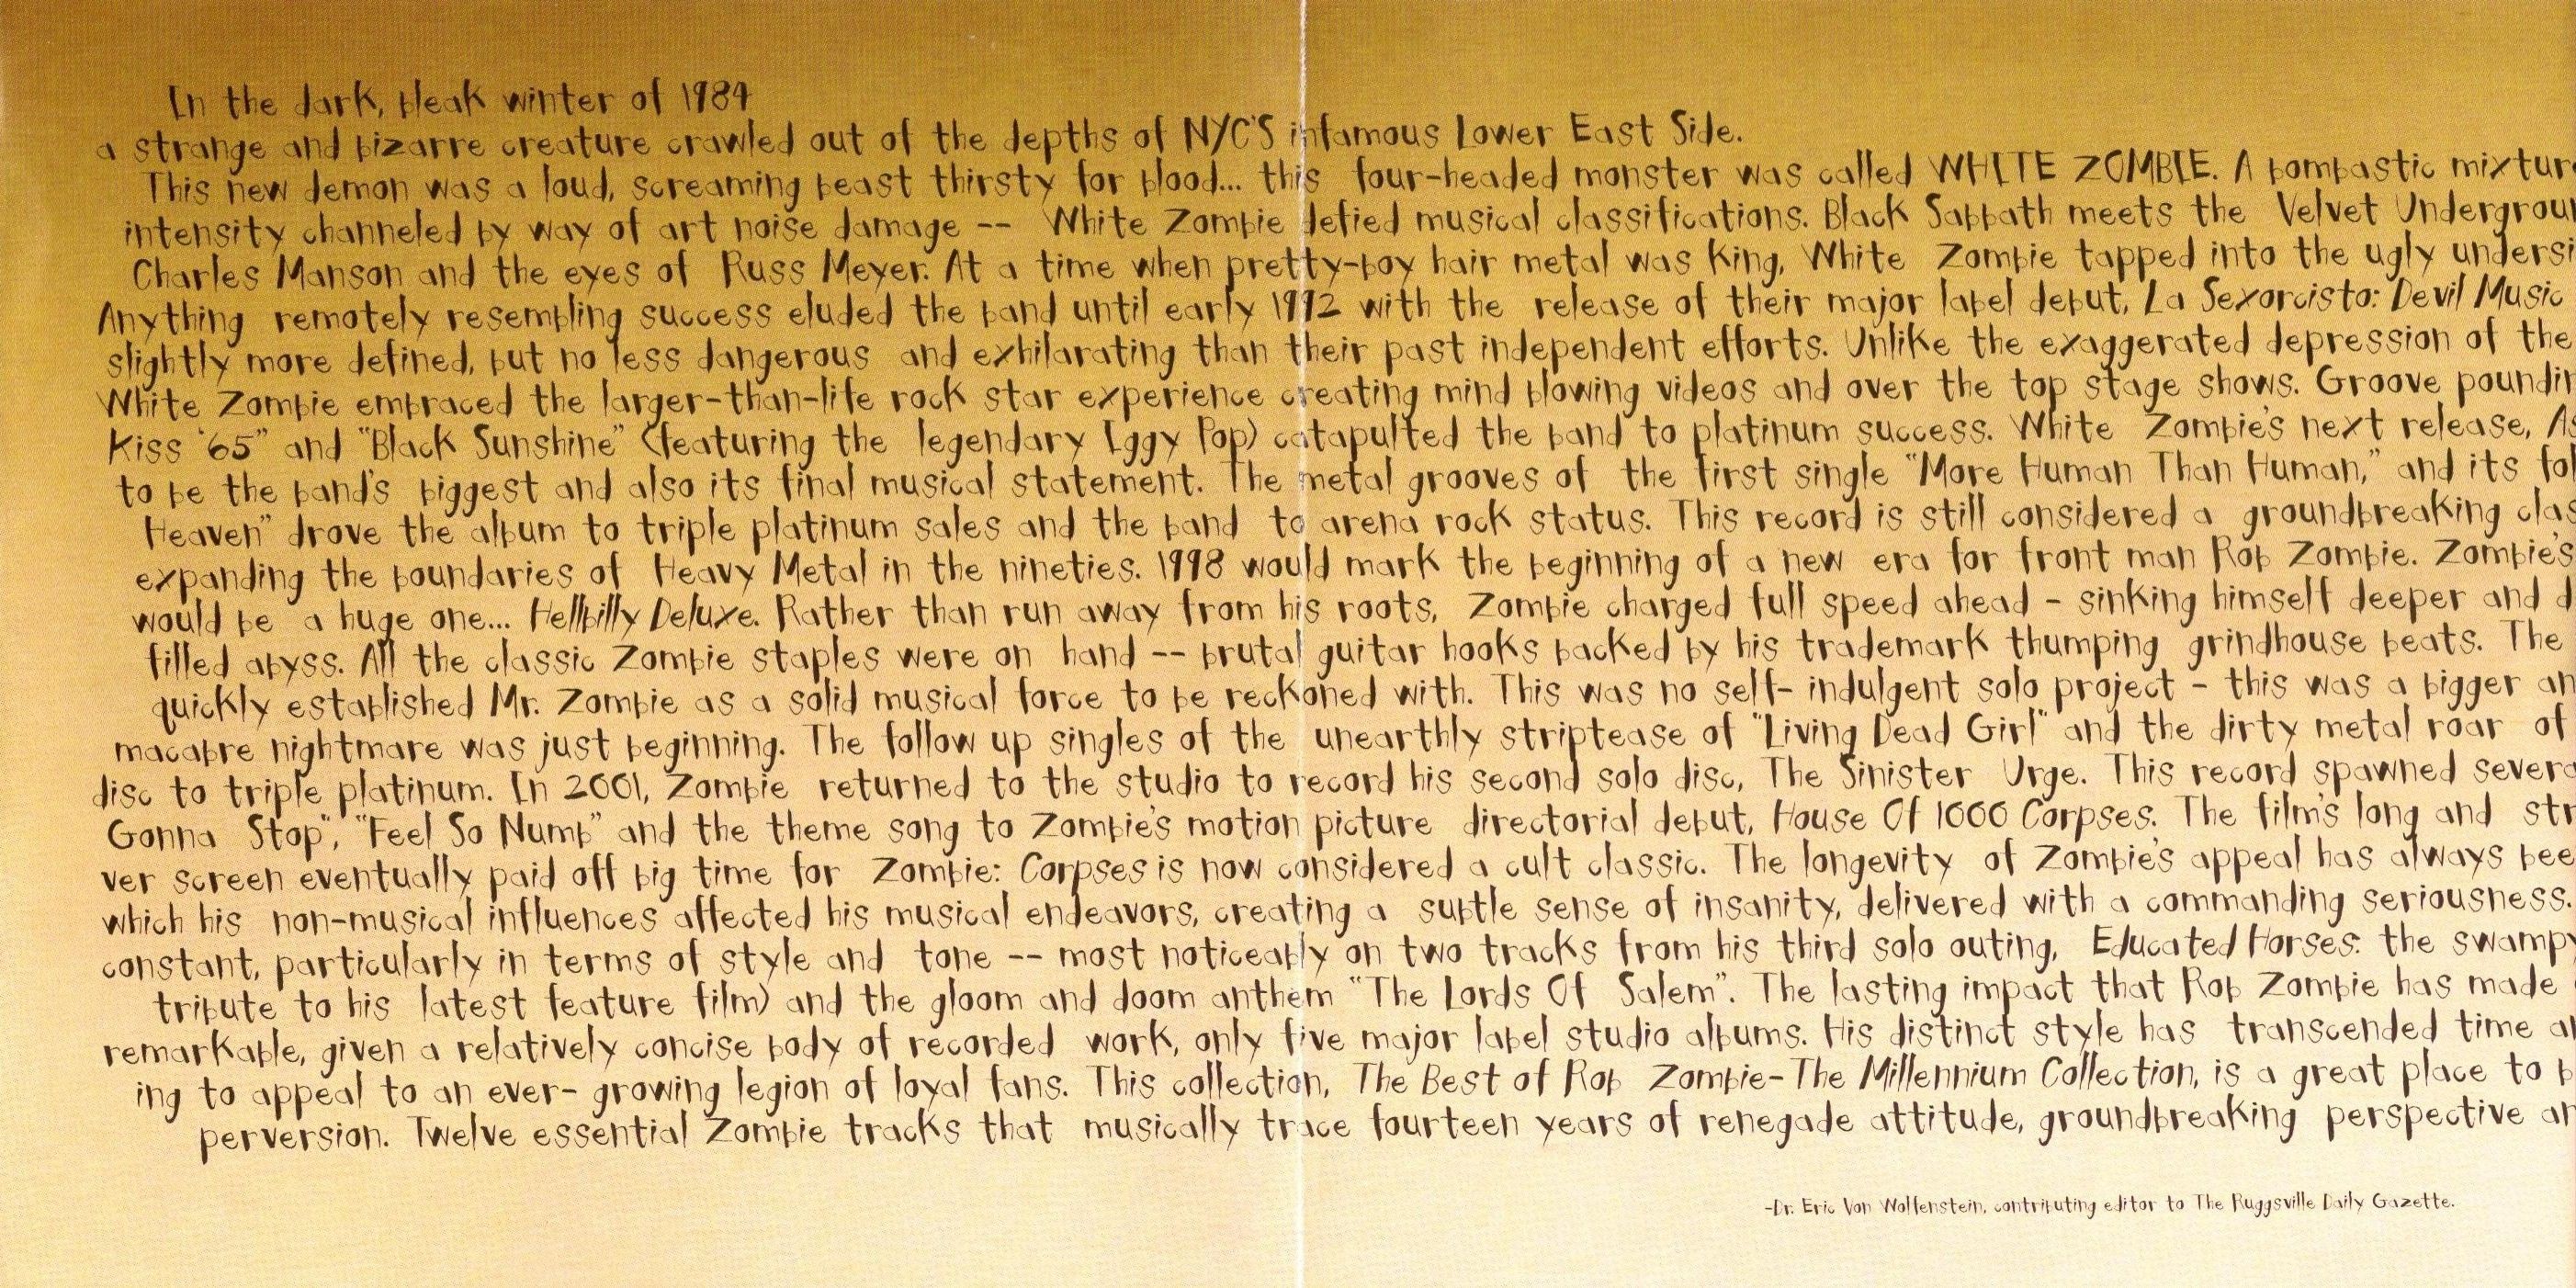 In the dark, bleak winter of 1984
a strange and bizarre creature crawled out of the depths of NYC'S infamous Lower East Side.
This new demon was a loud, screaming beast thirsty for blood... this four-headed monster was called WHITE ZOMBIE. A bombastic mixtur
intensity channeled by way of art noise damage -- White Zombie defied musical classifications. Black Sabbath meets the Velvet Undergrou
Charles Manson and the eyes of Russ Meyer. At a time when pretty-boy hair metal was King, White Zombie tapped into the ugly undersi
Anything remotely resembling success eluded the band until early 1992 with the release of their major label debut, La Sexorcisto: Devil Music
slightly more defined, but no less dangerous and exhilarating than their past independent efforts. Unlike the exaggerated depression of the
White Zombie embraced the larger-than-life rock star experience creating mind blowing videos and over the top stage shows. Groove poundin
Kiss '65" and "Black Sunshine" (featuring the legendary Iggy Pop) catapulted the band to platinum success. White Zombie's next release, As
to be the band's biggest and also its final musical statement. The metal grooves of the first single "More Human Than Human," and its fol
Heaven" drove the album to triple platinum sales and the band to arena rock status. This record is still considered a groundbreaking clas
expanding the boundaries of Heavy Metal in the nineties. 1998 would mark the beginning of a new era for front man Rob Zombie. Zombie's
would be a huge one... Hellbilly Deluxe. Rather than run away from his roots, Zombie charged full speed ahead - sinking himself deeper and d
filled abyss. All the classic Zombie staples were on hand -- brutal guitar hooks backed by his trademark thumping grindhouse beats. The
quickly established Mr. Zombie as a solid musical force to be reckoned with. This was no self- indulgent solo project - this was a bigger an
macabre nightmare was just beginning. The follow up singles of the unearthly striptease of "Living Dead Girl" and the dirty metal roar of
disc to triple platinum. In 2001, Zombie returned to the studio to record his second solo disc, The Sinister Urge. This record spawned severa
Gonna Stop", "Feel So Numb" and the theme song to Zombie's motion picture directorial debut, House Of 1000 Corpses. The film's long and str
ver screen eventually paid off big time for Zombie: Corpses is now considered a cult classic. The longevity of Zombie's appeal has always bee
which his non-musical influences affected his musical endeavors, creating a subtle sense of insanity, delivered with a commanding seriousness.
constant, particularly in terms of style and tone -- most noticeably on two tracks from his third solo outing, Educated Horses: the swampy
tribute to his latest feature film) and the gloom and doom anthem "The Lords Of Salem". The lasting impact that Rob Zombie has made
remarkable, given a relatively concise body of recorded work, only five major label studio albums. His distinct style has transcended time a
ing to appeal to an ever- growing legion of loyal fans. This collection, The Best of Rob Zombie-The Millennium Collection, is a great place to b
perversion. Twelve essential Zombie tracks that musically trace fourteen years of renegade attitude, groundbreaking perspective an
-Dr. Eric Von Wolfenstein, contributing editor to The Ruggsville Daily Gazette.